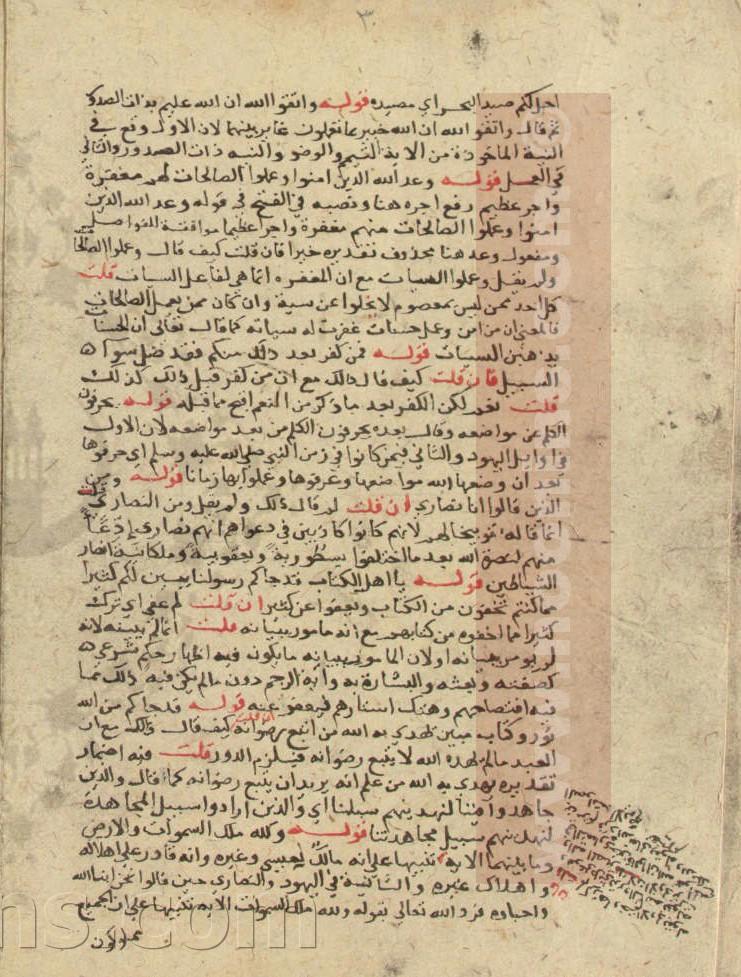 ٣٠
احل لكم صيد البحر اي مصيده قوله واتقوا الله ان الله عليم بذات الصدور
ثم قال واتقوا الله ان الله خبير بما تعملون غاير بينهما لان الاول وقع في
النية الماخوذة من الاية التيمم والوضو والنيه ذات الصدور والثاني
في العمل قوله وعد الله الذين امنوا وعملوا الصالحات لهم مغفرة
واجر عظيم رفع اجره هنا ونصبه في الفتح في قوله وعد الله الذين
امنوا وعملوا الصالحات منهم مغفرة واجرا عظيما موافقة للفواصل
ومفعول وعد هنا محذوف تقديره خيرا فان قلت كيف قال وعملوا الصالحات
ولم يقل وعملوا السيات مع ان المغفره انما هي لفاعل السيات قلت
كل احد ممن ليس بمعصوم لا يخلوا عن سية وان كان ممن يعمل الصالحات
فالمعني ان من امن وعمل حسنات غفرت له سياته كما قال تعالى ان الحسنات
يذهبن السيات قوله فمن كفر بعد ذلك منكم فقد ضل سوا
السبيل فان قلت كيف قال ذلك مع ان من كفر قبل ذلك كذلك
قلت نعم لكن الكفر بعد ما ذكر من النعم اقبح مما قبله قوله يحرفون
الكلم عن مواضعه وقال بعده يحرفون الكلم من بعد مواضعه لان الاول
في اوايل اليهود والثاني فيمن كانوا في زمن النبي صلى الله عليه وسلم اي حرفوها
بعد ان وضعها الله مواضعها وعرفوها وعملوا بها زمانا قوله ومن
الذين قالوا انا نصاري ان قلت لم قال ذلك ولم يقل ومن النصاري قلت
انما قاله توبيخا لهم لانهم كانوا كاذبين في دعواهم انهم نصاري ادعا
منهم لنصرة الله بعد ما اختلفوا نسطورية ويعقوبية وملكانية انصار
الشياطين قوله يا اهل الكتاب قد جاكم رسولنا يبين لكم كثيرا
مما كنتم تخفون من الكتاب ويعفوا عن كثير ان قلت لم عفى اي ترك
كثيرا مما اخفوه من كتابهم مع انه مامور ببيانه قلت انما لم يبينه لانه
لم يومر ببيانه او لان المامور ببيانه ما يكون فيه اظهار حكم شرعي
كصفته وبعثه والبشارة به واية الرجم دون ما لم يكن فيه ذلك مما
فيه افتضاحهم وهتك استارهم فيعفوا عنه قوله قد جاكم من الله
نور وكتاب مبين يهدي به الله من اتبع رضوانه ان قلت كيف قال ذلك مع ان
العبد ما لم يهده الله لا يتبع رضوانه فيلزم الدور قلت فيه اضمار
تقديره يهدي به الله من علم انه يريد ان يتبع رضوانه كما قال والذين
جاهدوا فينا لنهدينهم سبلنا اي والذين ارادوا سبيل المجاهدة
لنهدينهم سبيل مجاهدتنا قوله ولله ملك السموات والارض
وما بينهما الاية تنبيها على انه مالك لعيسى وغيره وانه قادر على اهلاكه
واهلاك غيره والثانية في اليهود والنصاري حين قالوا نحن ابنا الله
واحباوه فرد الله تعالى بقوله ولله ملك السموات الاية تنبيها على ان الجميع
مملوكون
ns.com